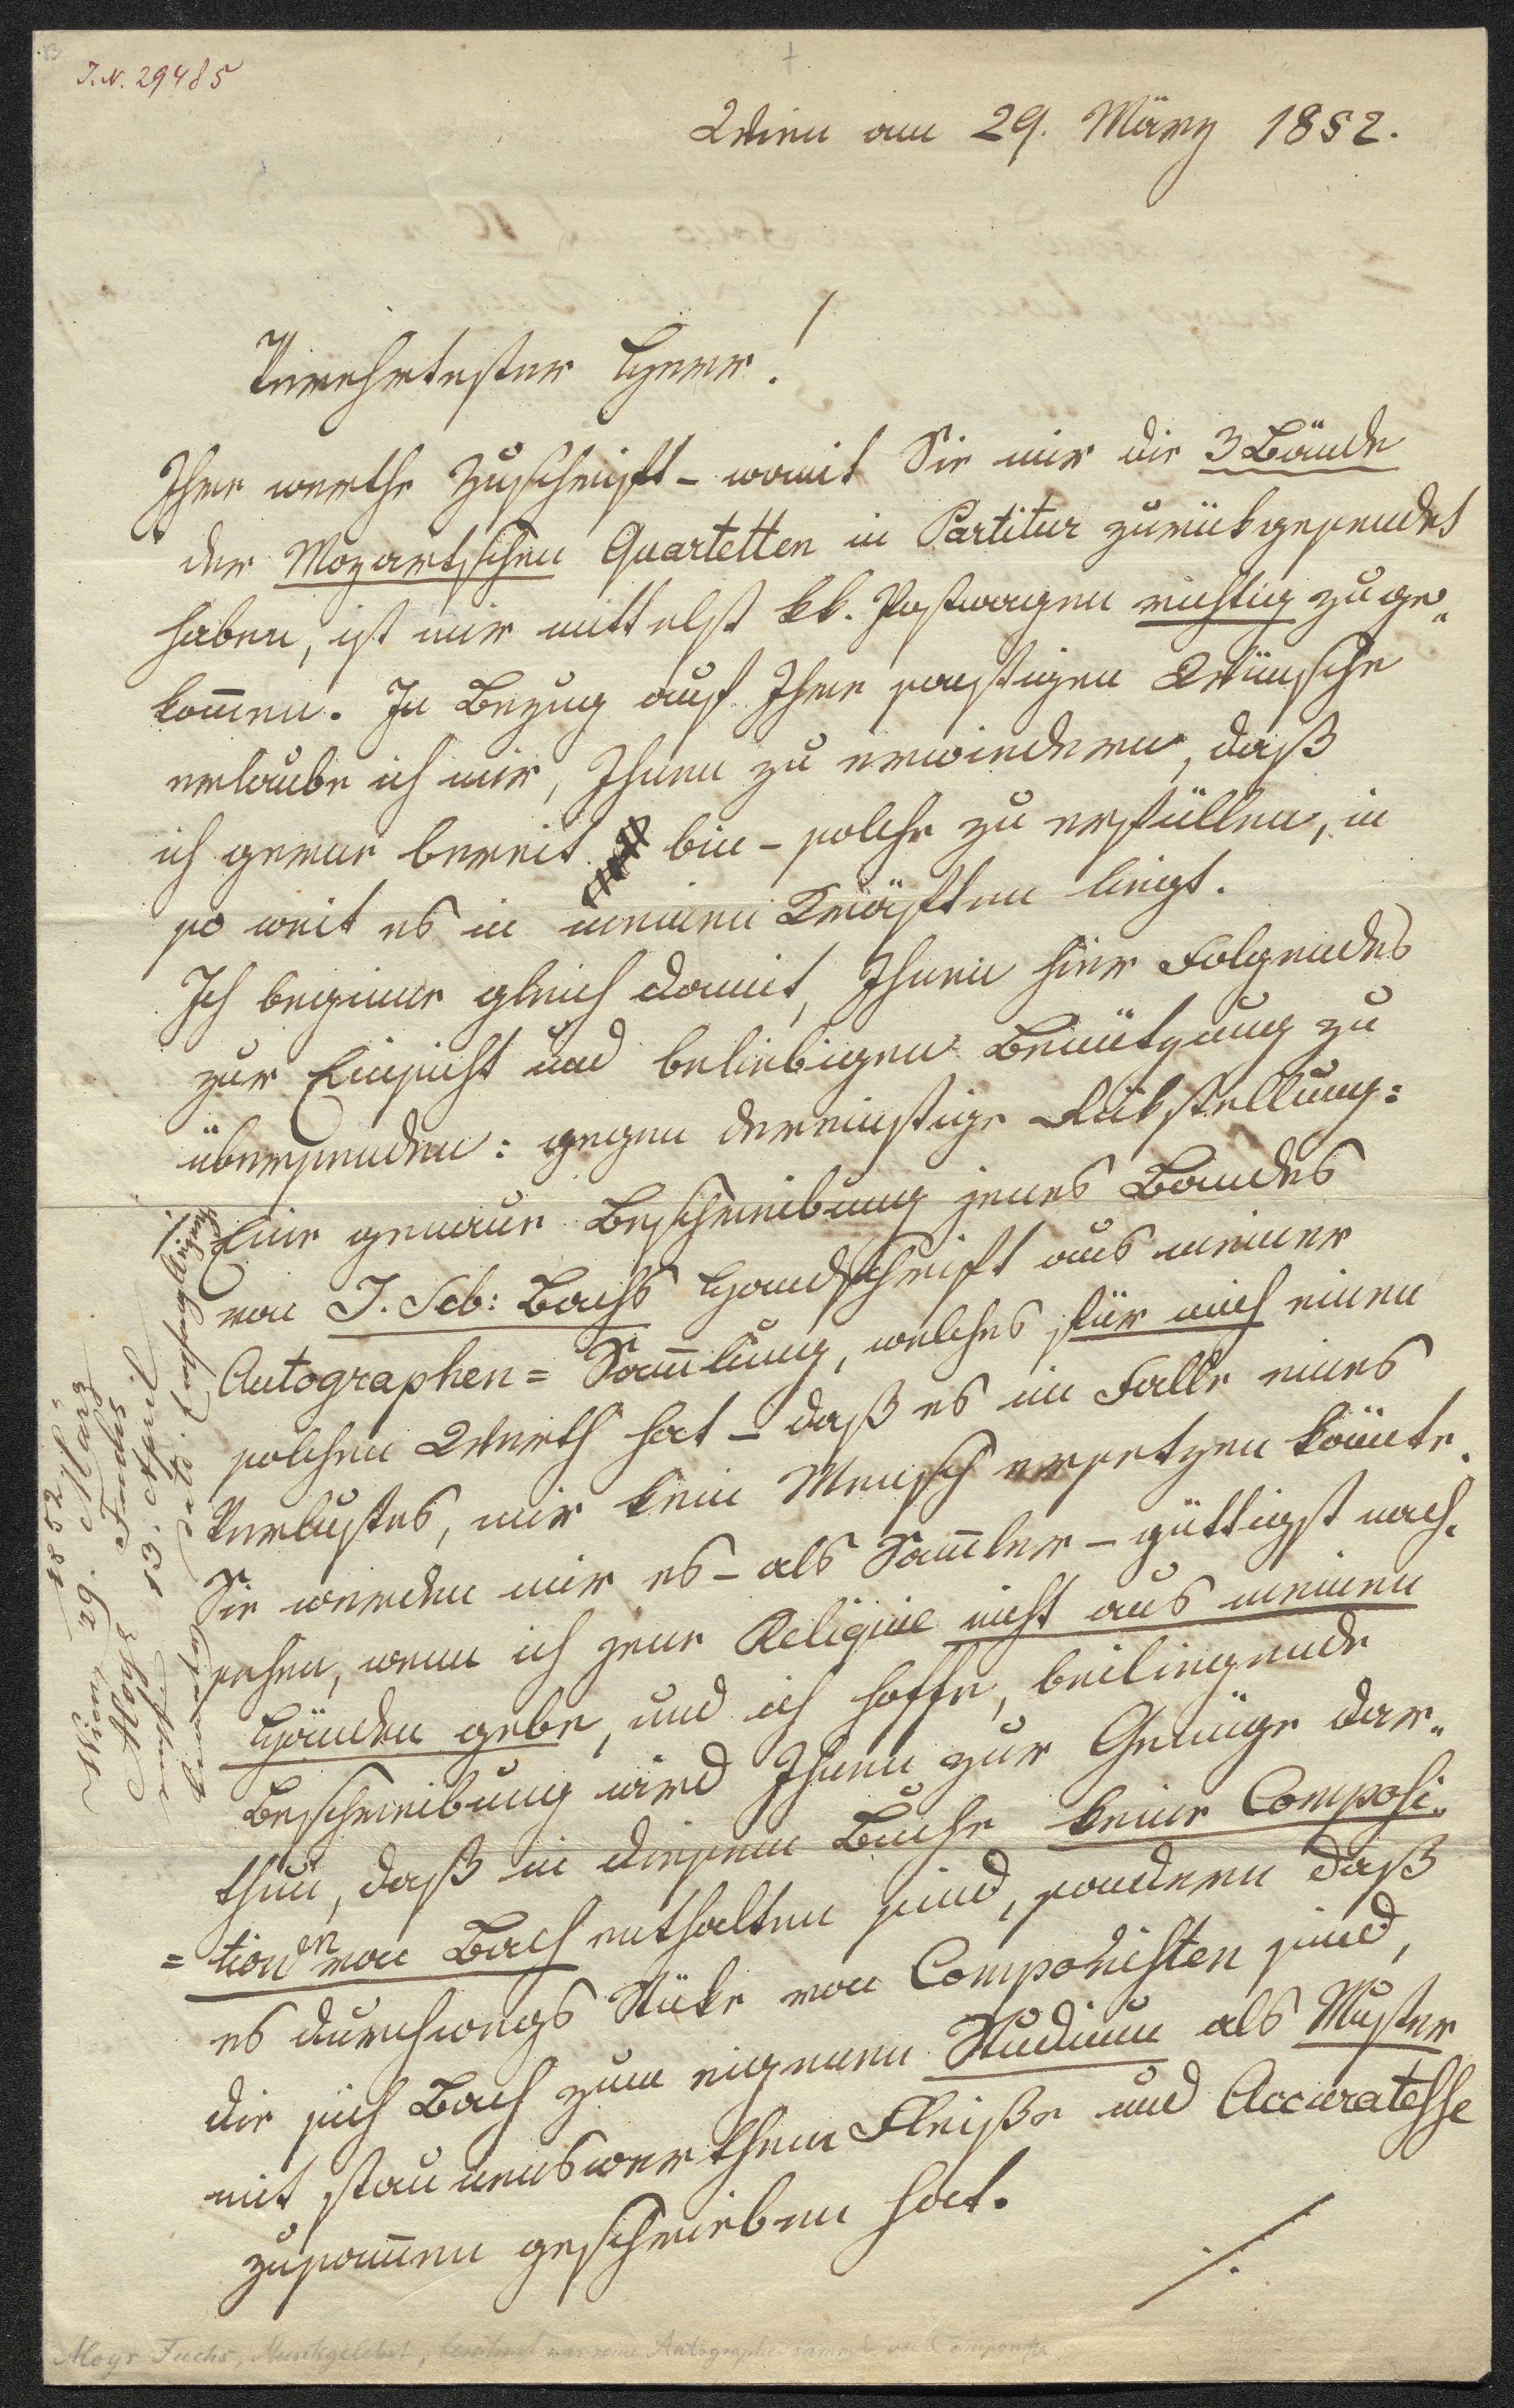 I.N. 29485
Wien am 29. März 1852.
Verehrtester Herr!
Ihre werthe Zuschrift – womit Sie mir die 3 Bände
der Mozartschen Quartetten in Partitur zurükgesendet
haben, ist mir mittelst kk. Postwagen richtig zuge„
kom̄en. In Bezug auf Ihre sonstigen Wünsche
erlaube ich mir, Ihnen zu erwiedern, daß
ich gerne bereit bin – solche zu erfüllen, in
so weit es in meinen Kräften liegt.
Ich beginne gleich damit, Ihnen hier Folgendes
zur Einsicht und beliebigen Benützung zu
übersenden: gegen dereinstige Rükstellung:
1. Eine genaue Beschreibung jenes Bandes
von J. Seb: Bachs Handschrift aus meiner
Autographen = Sam̄lung, welches für mich einen
solchen Werth hat – daß es im Falle eines
Verlustes, mir kein Mensch ersetzen könnte.
Sie werden mir es – als Sam̄ler – güttigst nach„
sehen, wenn ich jene Reliquie nicht aus meinen
Händen gebe, und ich hoffe, beiliegende
Beschreibung wird Ihnen zur Genüge dar„
thun, daß in diesem Buche keine Composi„
= tionen von Bach enthalten sind, sondern daß
es durchwegs Stüke von Componisten sind,
die sich Bach zum eigenen Studium als Muster
mit staunenswerthem Fleiße und Accuratesse
zusam̄en geschrieben hat.
./.
1852
Wien 29. März
Aloys Fuchs
13. April
Aloys Fuchs, Musikgelehrt, berühmt war seine Autographensammlg. von Componisten